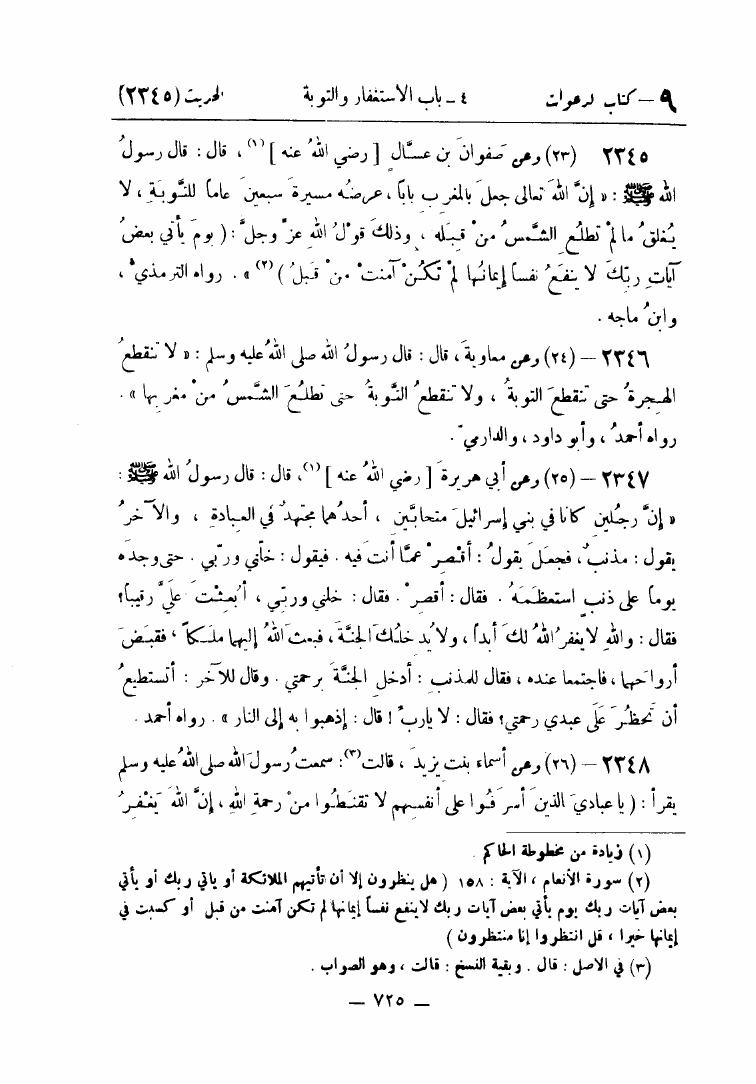 ٩ – كتاب الدعوات ٤ – باب الاستغفار والتوبة الحديث (٢٣٤٥)
٢٣٤٥ (٢٣) وعن صَفوانَ بن عسَّالٍ [ رضي اللهُ عنه ](١) ، قال : قال رسولُ
الله ﷺ : « إِنَّ اللهَ تعالى جعلَ بالمغربِ باباً ، عرضُه مسيرةَ سبعينَ عاماً للتَّوبَةِ ، لا
يُغلقُ ما لمْ تطلُعِ الشَّمسُ منْ قِبَلِه ، وذلكَ قوْلُ اللهِ عزَّ وجلَّ : ( يومَ يأتي بعضُ
آياتِ ربِّكَ لا ينفعُ نفساً إيمانُها لمْ تكُنْ آمنتْ منْ قبلُ )(٢) » . رواه الترمذيُّ ،
وابنُ ماجه .
٢٣٤٦ – (٢٤) وعن معاويةَ ، قال : قال رسولُ الله صلى اللهُ عليه وسلم : « لا تنقطعُ
الهجرةُ حتى تنقطعَ التوبةُ ، ولا تنقطعُ التَّوبةُ حتى تطلُعَ الشَّمسُ منْ مغربِها » .
رواه أحمدُ ، وأبو داود ، والدارميّ .
٢٣٤٧ – (٢٥) وعن أبي هريرةَ [ رضي اللهُ عنه ](١) ، قال : قال رسولُ الله ﷺ :
« إِنَّ رجُلينِ كانا في بني إسرائيلَ متحابَّينِ ، أحدُهما مجتهدٌ في العبادةِ ، والآخرُ
يقول : مذنبٌ ، فجعلَ يقولُ : أقصِرْ عمَّا أنتَ فيه . فيقول : خلِّني وربّي . حتى وجدَه
يوماً على ذنبٍ استعظمَهُ . فقال : أقصرْ . فقال : خلني وربّي ، أبُعثتَ عليَّ رقيباً؟
فقال : واللهِ لا يغفرُ اللهُ لكَ أبداً ، ولا يُدخلُكَ الجنَّةَ ، فبعثَ اللهُ إليهما ملَكاً ، فقبضَ
أرواحَهما ، فاجتمعا عنده ، فقال للمذنبِ : أدخلِ الجنَّةَ برحمتي . وقال للآخر : أتستطيعُ
أن تحظُرَ عَلَى عبدي رحمتي؟ فقال : لا ياربِّ ! قال : إذهبوا به إلى النار » . رواه أحمد .
٢٣٤٨ – (٢٦) وعن أسماءَ بنت يزيدَ ، قالت(٣) : سمعتُ رسولَ الله صلى اللهُ عليه وسلم
يقرأ : ( يا عباديَ الذينَ أسرَفُوا على أنفسِهم لا تقنَطُوا منْ رحمةِ اللهِ ، إنَّ اللهَ يَغْفِرُ
(١) زيادة من مخطوطة الحاكم .
(٢) سورة الأنعام ، الآية : ١٥٨ ( هل ينظرون إلا أن تأتيهم الملائكة أو ياتي ربك أو يأتي
بعض آيات ربك يوم يأتي بعض آيات ربك لا ينفع نفساً إيمانها لم تكن آمنت من قبل أو كسبت في
إيمانها خيرا ، قل انتظروا إنا منتظرون )
(٣) في الاصل : قال . وبقية النسخ : قالت ، وهو الصواب .
— ٧٢٥ —